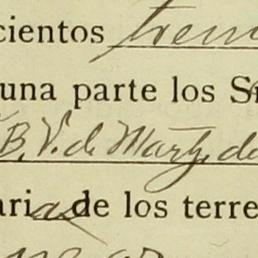 cientos trein
una parte los S
B. V. de Martz, de
arias de los terre